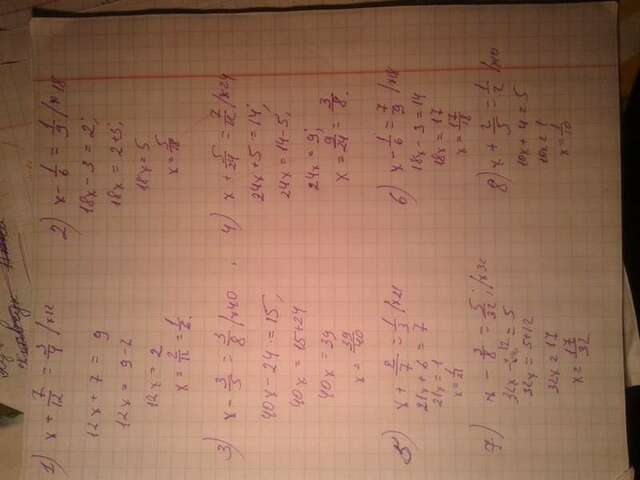 1) x + 7/12 = 3/4 /x12
12x + 7 = 9
12x = 9-2
12x = 2
x = 2/12 = 1/6.
2) x - 1/6 = 1/9 /x18
18x - 3 = 2;
18x = 2+3;
18x = 5
x = 5/18
3) x - 3/5 = 3/8 /x40
40x - 24 = 15;
40x = 15+24
40x = 39
x = 39/40
4) x + 5/24 = 7/12 /x24
24x + 5 = 14;
24x = 14-5;
24x = 9;
x = 9/24 = 3/8.
5) x + 2/7 = 1/3 /x21
21x + 6 = 7
21x = 1
x = 1/21
6) x - 1/6 = 7/9 /x18
18x - 3 = 14
18x = 17
x = 17/18
7) x - 3/8 = 5/32; /x32
32x - 12 = 5
32x = 5+12
32x = 17
x = 17/32
8) x + 2/5 = 1/2 /x10
10x + 4 = 5
10x = 1
x = 1/10